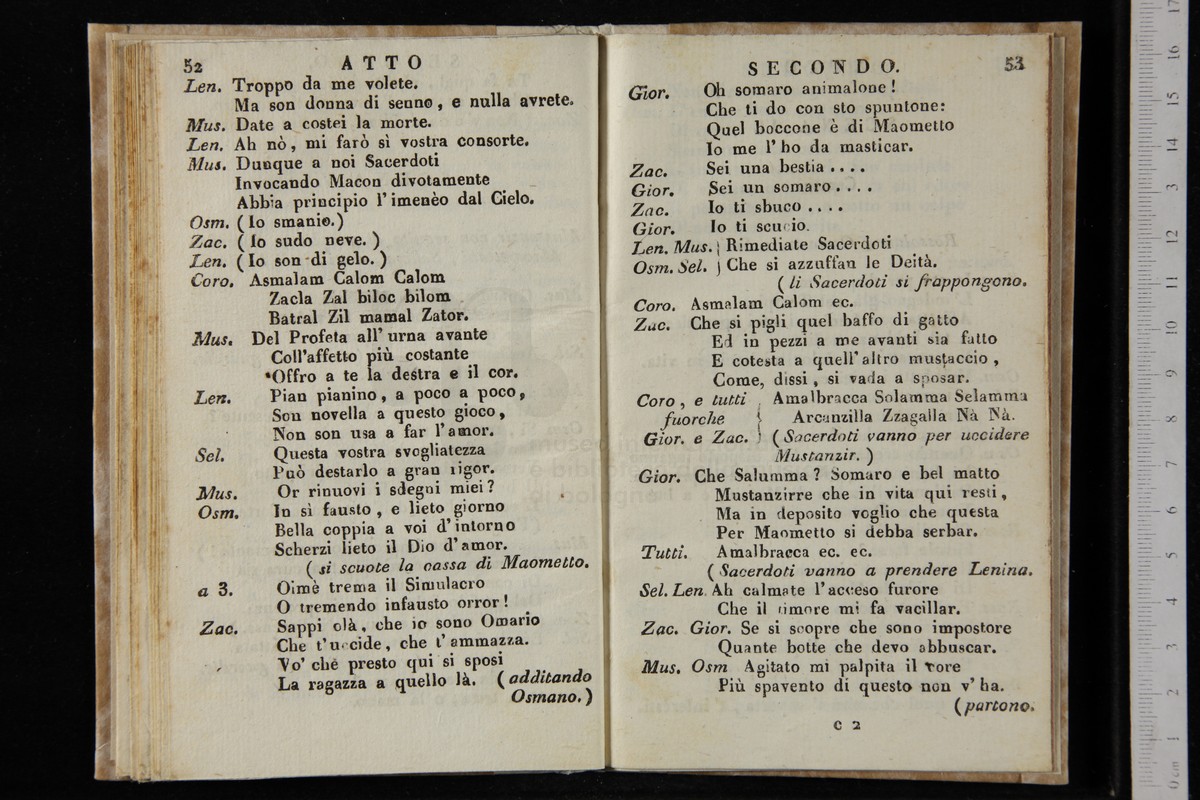 52 ATTO
Len. Troppo da me volete.
Ma son donna di senno, e nulla avrete.
Mus. Date a costei la morte.
Len. Ah nò, mi farò sì vostra consorte.
Mus. Dunque a noi Sacerdoti
Invocando Macon divotamente
Abbia principio l'imenèo dal Cielo.
Osm. (Io smanio.)
Zac. (Io sudo neve.)
Len. (Io son di gelo.)
Coro. Asmalam Calom Calom
Zacla Zal biloc bilom
Batral Zil mamal Zator.
Mus. Del Profeta all'urna avante
Coll'affetto più costante
Offro a te la destra e il cor.
Len. Pian pianino, a poco a poco,
Son novella a questo gioco,
Non son usa a far l'amor.
Sel. Questa vostra svogliatezza
Può destarlo a gran rigor.
Mus. Or rinuovi i sdegni miei?
Osm. In sì fausto, e lieto giorno
Bella coppia a voi d'intorno
Scherzi lieto il Dio d'amor.
(si scuote la cassa di Maometto.
a 3. Oimè trema il Simulacro
O tremendo infausto orror!
Zac. Sappi olà, che io sono Omario
Che t'uccide, che t'ammazza.
Vo' che presto qui si sposi
La ragazza a quello là. (additando
Osmano.)
SECONDO. 53
Gior. Oh somaro animalone!
Che ti do con sto spuntone:
Quel boccone è di Maometto
Io me l'ho da masticar.
Zac. Sei una bestia ....
Gior. Sei un somaro ....
Zac. Io ti sbuco ....
Gior. Io ti scucio.
Len. Mus. } Rimediate Sacerdoti
Osm. Sel. } Che si azzuffan le Deità.
(li Sacerdoti si frappongono.
Coro. Asmalam Calom ec.
Zac. Che si pigli quel baffo di gatto
Ed in pezzi a me avanti sia fatto
E cotesta a quell'altro mustaccio,
Come, dissi, si vada a sposar.
Coro, e tutti Amalbracca Solamma Selamma
fuorche } Arcanzilla Zzagalla Nà Nà.
Gior. e Zac. } (Sacerdoti vanno per uccidere
Mustanzir.)
Gior. Che Salumma? Somaro e bel matto
Mustanzirre che in vita qui resti,
Ma in deposito voglio che questa
Per Maometto si debba serbar.
Tutti. Amalbracca ec. ec.
(Sacerdoti vanno a prendere Lenina.
Sel. Len. Ah calmate l'acceso furore
Che il timore mi fa vacillar.
Zac. Gior. Se si scopre che sono impostore
Quante botte che devo abbuscar.
Mus. Osm Agitato mi palpita il
Più spavento di questo non v'ha.
(partono.
C 2